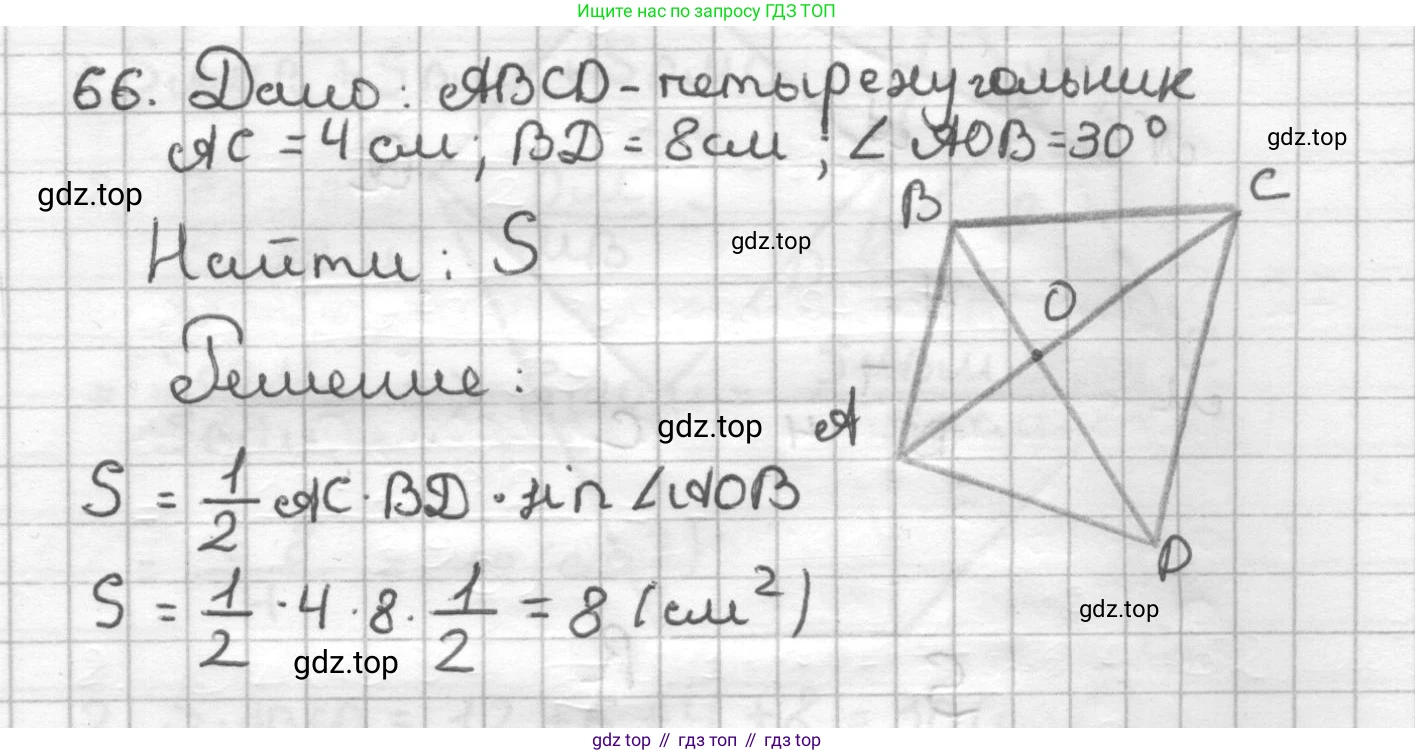 Ищите нас по запросу ГДЗ ТОП
66. Дано: ABCD - четырехугольник
AC = 4 см; BD = 8 см; ∠ AOB = 30°
gdz.top
gdz.top
B
C
Найти: S
gdz.top
O
Решение:
gdz.top
A
S = 1/2 AC · BD · sin ∠AOB
D
S = 1/2 · 4 · 8 · 1/2 = 8 (см²)
gdz.top
gdz.top
gdz top // гдз топ // гдз top